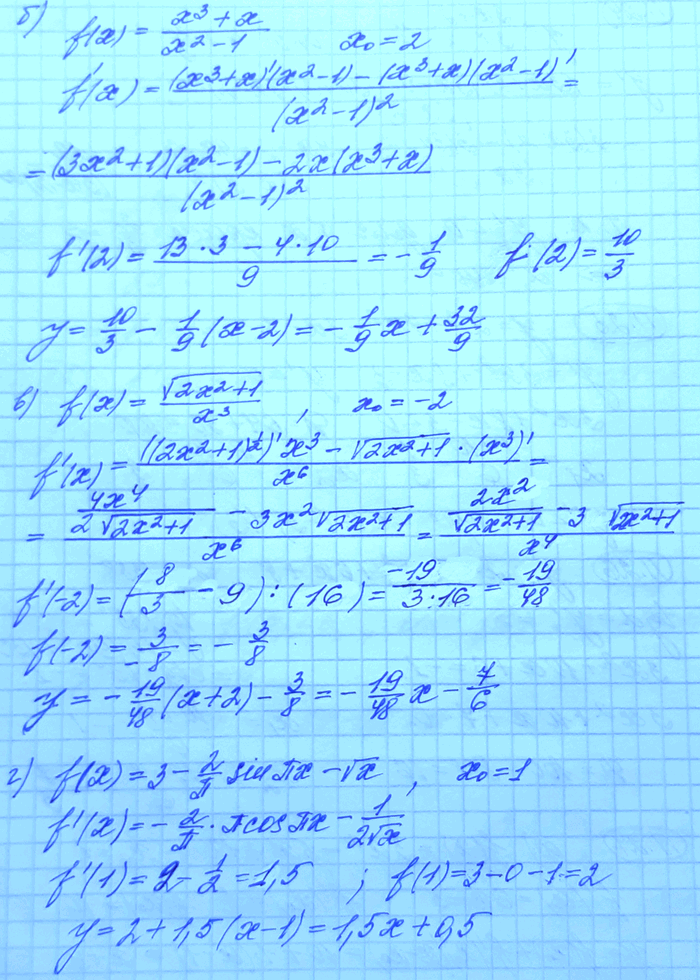 б) f(x) = (x³ + x)/(x² - 1)   x₀ = 2
f'(x) = ((x³+x)'(x²-1) - (x³+x)(x²-1)')/(x²-1)² =
= ((3x²+1)(x²-1) - 2x(x³+x))/(x²-1)²
f'(2) = (13·3 - 4·10)/9 = -1/9   f(2) = 10/3
y = 10/3 - 1/9(x-2) = -1/9x + 32/9
в) f(x) = √(2x²+1)/x³ , x₀ = -2
f'(x) = (((2x²+1)^(1/2))' x³ - √(2x²+1)·(x³)')/x⁶ =
= (4x⁴/(2√(2x²+1)) - 3x²√(2x²+1))/x⁶ = (2x²/√(2x²+1) - 3 √(2x²+1))/x⁴
f'(-2) = (8/3 - 9):(16) = -19/(3·16) = -19/48
f(-2) = 3/-8 = -3/8
y = -19/48(x+2) - 3/8 = -19/48x - 7/6
г) f(x) = 3 - 2/π sin πx - √x , x₀ = 1
f'(x) = -2/π·π cos πx - 1/(2√x)
f'(1) = 2 - 1/2 = 1,5 ; f(1) = 3-0-1 = 2
y = 2 + 1,5(x-1) = 1,5x + 0,5